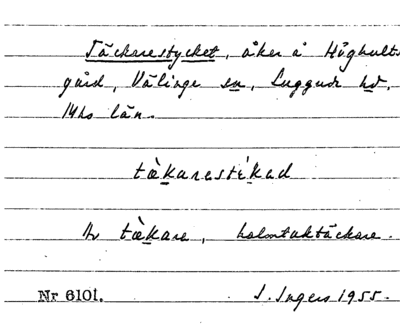 Täckarestycket, åker å Höghults
gård, Välinge sn, Luggude hd.
Mhs län.
tækarestikad
Av tækare, halmtaktäckare.
Nr 6101. I. Ingers 1955.